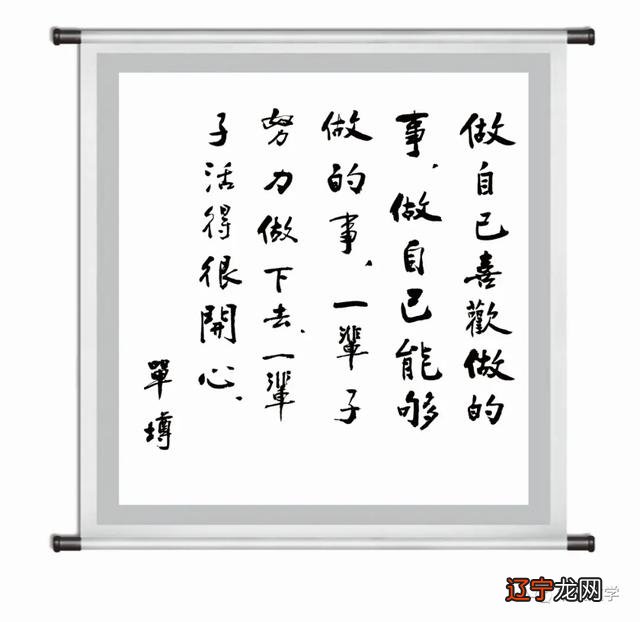 做自己喜歡做的
事，做自己能够
做的事，一輩子
努力做下去，一輩
子活得很開心。
單墫
辽宁龙网
学